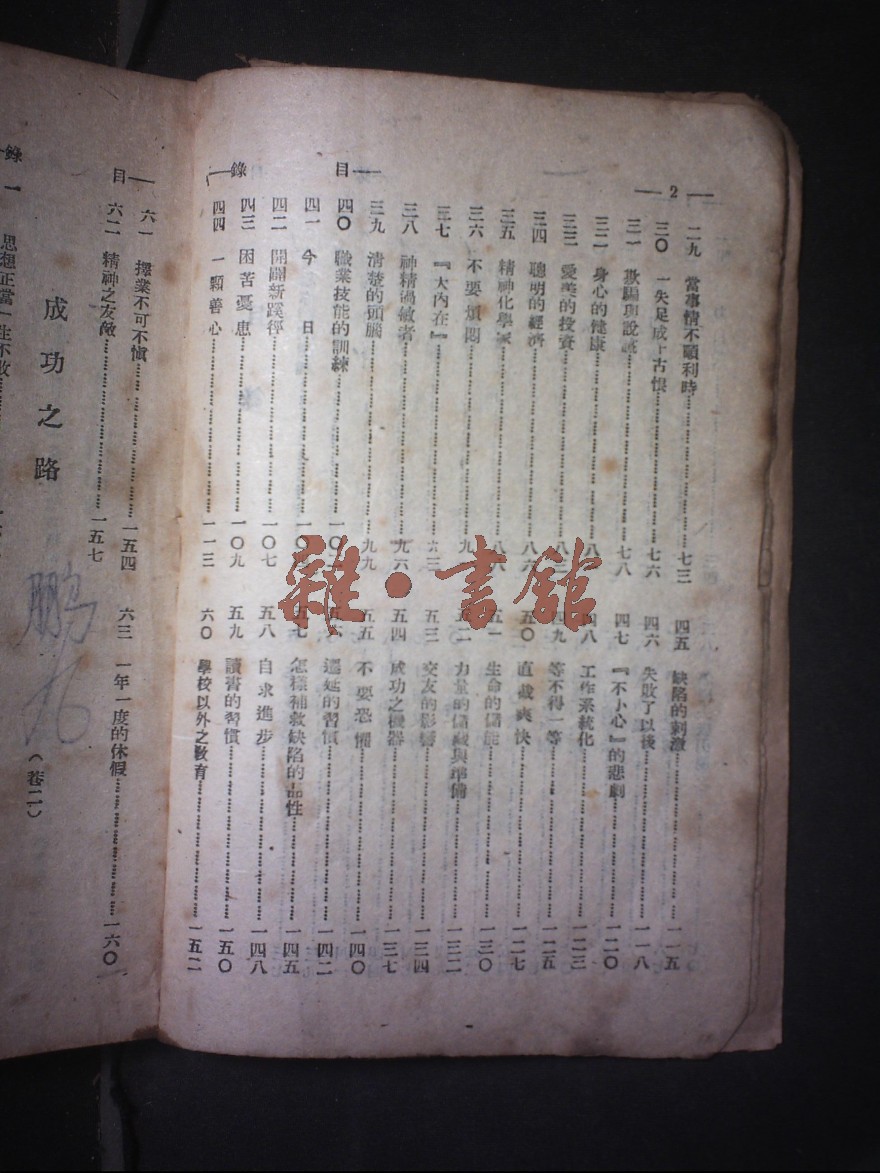 — 2 —
目 錄
二九 當事情不順利時 七三
三〇 一失足成千古恨 七六
三一 欺騙與說謊 七八
三二 身心的健康
三三 愛美的投資
三四 聰明的經濟 八六
三五 精神化學家 八八
三六 不要煩悶
三七 『大內在』
三八 神精過敏者 九六
三九 清楚的頭腦 九九
四〇 職業技能的訓練
四一 今日
四二 開闢新蹊徑 一〇七
四三 困苦憂患 一〇九
四四 一顆善心 一一三
四五 缺陷的刺激 一一五
四六 失敗了以後 一一八
四七 『不小心』的悲劇 一二〇
四八 工作系統化 一二三
四九 等不得一等 一二五
五〇 直截爽快 一二七
五一 生命的儲能 一三〇
五二 力量的儲藏與準備 一三二
五三 交友的影響 一三四
五四 成功之機器 一三七
五五 不要恐懼 一四〇
五六 遷延的習慣 一四二
五七 怎樣補救缺陷的品性 一四五
五八 自求進步 一四八
五九 讀書的習慣 一五〇
六〇 學校以外之教育 一五二
目
六一 擇業不可不慎 一五四
六二 精神之友敵 一五七
六三 一年一度的休假 一六〇
成功之路
(卷二)
鹏
錄
一 思想正當一生不敗
雜·書館